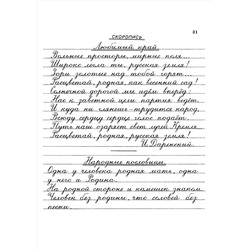 31
СКОРОПИСЬ
Любимый край.
Вольные просторы, мирные поля...
Широко легла ты, русская земля!
Зори золотые над тобой горят...
Расцветай, родная, как весенний сад!
Солнечной дорогой мы идём вперёд:
Нас к заветной цели партия ведёт.
И куда ни глянешь — трудится народ,
Всюду сердцу сердце голос подаёт.
Путь наш озаряет свет лучей Кремля.
Расцветай, родная, русская земля!
И. Даренский.
Народные пословицы.
Одна у человека родная мать, одна
у него и Родина.
На родной стороне и камешек знаком.
Человек без родины, что соловей без
песни.